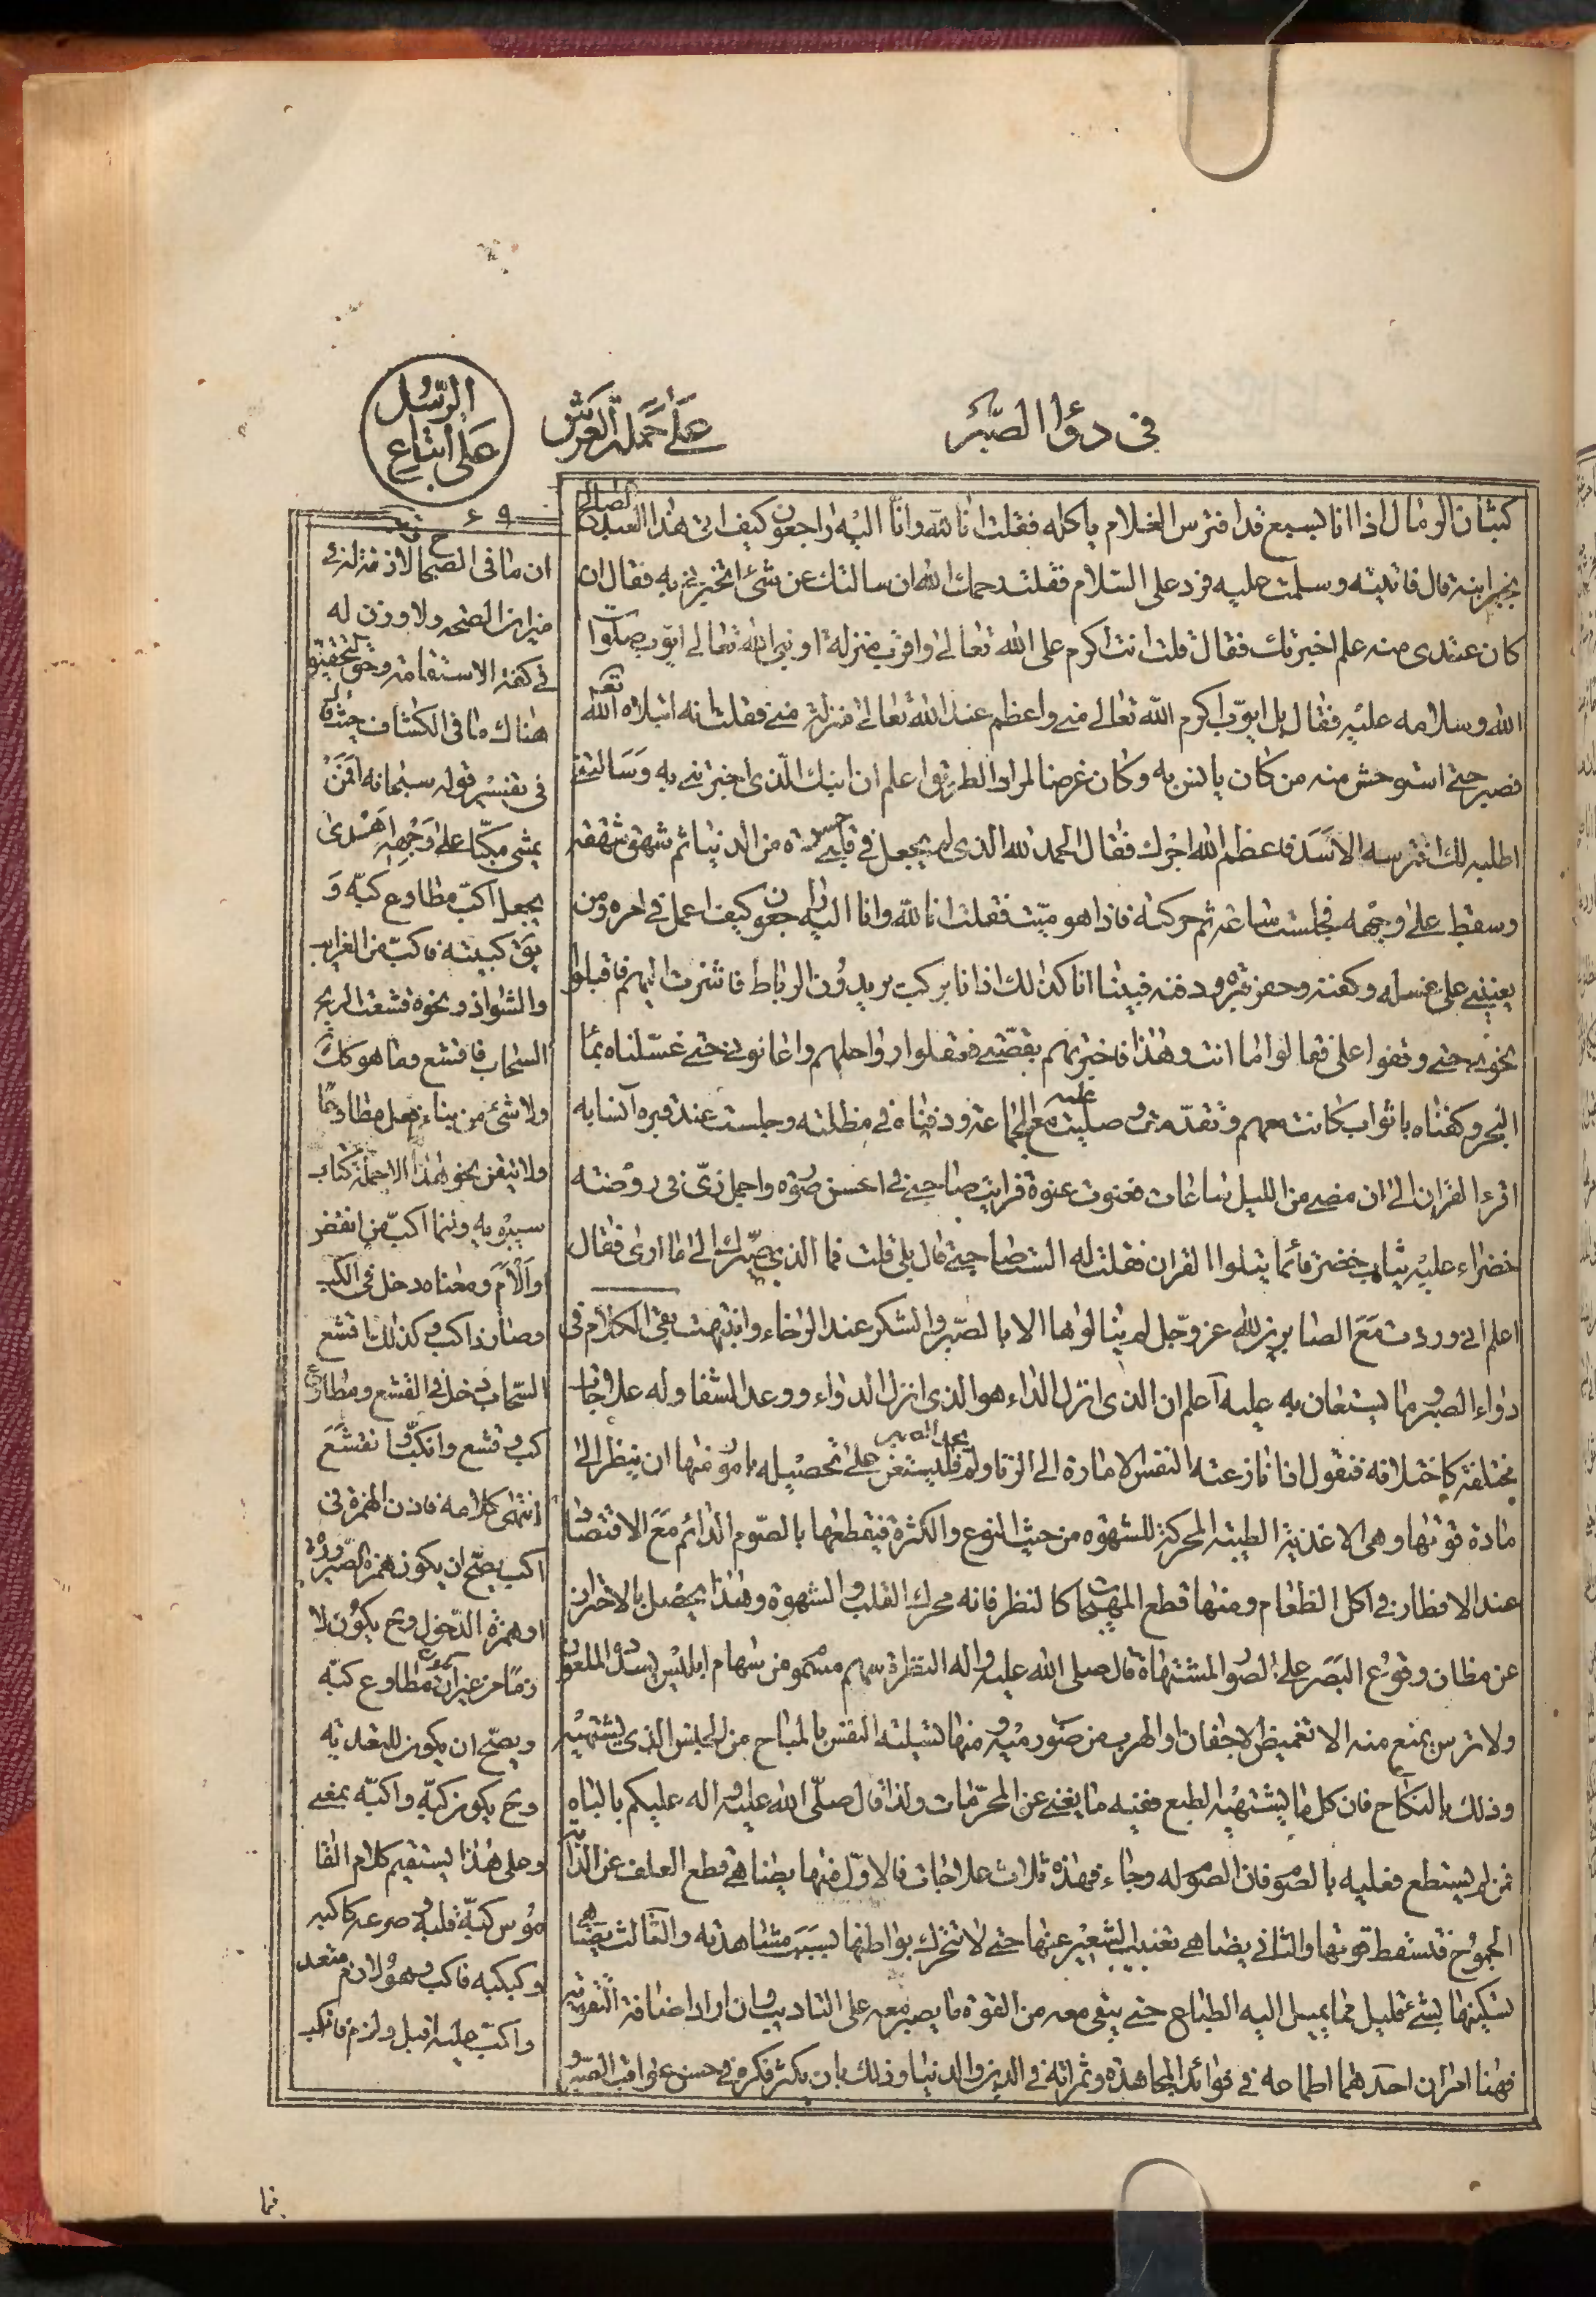 في دواء الصبر
على حملة العرش
الرسل
على اتباع
كثبان الرمال اذا انا بسبع قد افترس الغلام ياكله فقلت انا لله وانا اليه راجعون كيف اتى هذا العبد الصالح
بخبر ابنه قال فاتيته وسلمت عليه فرد على السلام فقلت رحمك الله ان سالتك عن شئ اتخبرني به فقال ان
كان عندى منه علم اخبرتك فقال قلت انت اكرم على الله تعالى واقرب منزلة او نبى الله تعالى ايوب صلوات
الله وسلامه عليه فقال بل ايوب اكرم الله تعالى منى واعظم عند الله تعالى منزلة منى فقلت انه ابتلاه الله تعه
فصبر حتى استوحش منه من كان يانس به وكان غرضا لمرار الطريق اعلم ان ابنك الذى اخبرتنى به وسالتنى
اطلبه لك افترسه الاسد فاعظم الله اجرك فقال الحمد لله الذى لم يجعل فى قلبى حسرة من الدنيا ثم شهق شهقة
وسقط على وجهه فجلست ساعة ثم حركته فاذا هو ميت فقلت انا لله وانا اليه راجعون كيف اعمل فى امره ومن
يعيننى على غسله وكفنه وحفر قبره ودفنه فبينا انا كذلك اذا انا بركب يريدون الرباط فاشرت اليهم فاقبلوا
نحوى حتى وقفوا على فقالوا ما انت وهذا فاخبرتهم بقصتى فعقلوا رواحلهم واعانونى حتى غسلناه بماء
البحر وكفناه باثواب كانت معهم وتقدمت وصليت عليه مع الجماعة ودفناه فى مظلته وجلست عند قبره آنسا به
اقرء القران الى ان مضى من الليل ساعات فغفوت غفوة فرايت صاحبى فى احسن صورة واجمل زى فى روضة
خضراء عليه ثياب خضر قائما يتلوا القران فقلت له الست صاحبى قال بلى قلت فما الذى صيرك الى ما ارى فقال
اعلم انى وردت مع الصابرين لله عز وجل لم ينالوها الا بالصبر والشكر عند الرخاء وانتبهت بقى الكلام فى
دواء الصبر وما يستعان به عليه اعلم ان الذى انزل الداء هو الذى انزل الدواء ووعد الشفا وله علاجات
مختلفة كاختلافه فنقول اذا نازعته النفس الامارة الى الزنا ولم فليستعن على تحصيله بامور منها ان ينظر الى
مادة قوتها وهى الاغذية الطيبة المحركة للشهوه من حيث النوع والكثرة فيقطعها بالصوم الدائم مع الاقتصاد
عند الافطار فى اكل الطعام ومنها قطع المهيجات كالنظر فانه محرك القلب والشهوة وهذا يحصل بالاحتراز
عن مظان وقوع البصر على الصور المشتهاة قال صلى الله عليه واله النظرة سهم مسموم من سهام ابليس يسدده الملعون
ولا ترس يمنع منه الا تغميض الاجفان والهرب من صوب رميه ومنها تسلية النفس بالمباح من الجنس الذى يشتهيه
وذلك بالنكاح فان كل ما يشتهيه الطبع ففيه ما يغنى عن المحرمات ولذا قال صلى الله عليه واله عليكم بالباه
فمن لم يستطع فعليه بالصوم فان الصوم له وجاء فهذه ثلاث علاجات فالاول منها يضاهى قطع العلف عن الدابة
الجموح فتسقط قوتها والثانى يضاهى تغييب الشعير عنها حتى لا تتحرك بواطنها بسبب مشاهدته والثالث يضاهى
تسكينها بشئ قليل مما يميل اليه الطباع حتى يبقى معه من القوة ما يصبر معه على التاديب وان اراد اضافة التقوية
فهنا امران احدهما اطماعه فى فوائد المجاهدة وثمراته فى الدين والدنيا وذلك بان يكثر فكره فى حسن عواقب الصبر و
ان ما فى الصحاح لاذ منزلة
ميزان الصحه ولا وزن له
فى كفة الاستقامة وحق التحقيق
هناك ما فى الكشاف حيث قال
فى تفسير قوله سبحانه افمن
يمشى مكبا على وجهه اهدى
يجعل اكب مطاوع كبه و
يق كببته فاكب من الغرايب
والشواذ ونحوه قشعت الريح
السحاب فاقشع وما هو كك
ولا شئ من بناء افعل مطاوعا
ولا يتقن نحو هذا الا حملة كتاب
سيبويه وانما اكب من انفض
والأم ومعناه دخل فى الكب
وصار ذا كب وكذلك اقشع
السحاب دخل فى القشع ومطاوع
كب وقشع وانكب وانقشع
انتهى كلامه فاذن الهمزة فى
اكب يصح ان يكون همزة الصيرورة
او همزة الدخول وح يكون لا
زما من غير ان مطاوع كبه
ويصح ان يكون للتعدية
وح يكون كبه واكبه بمعنى
وعلى هذا يستقيم كلام القا
موس كبه قلبه وصرعه كاكبه
وكبكبه فاكب وهو لازم متعد
واكب عليه اقبل ولزم فانكب
فما